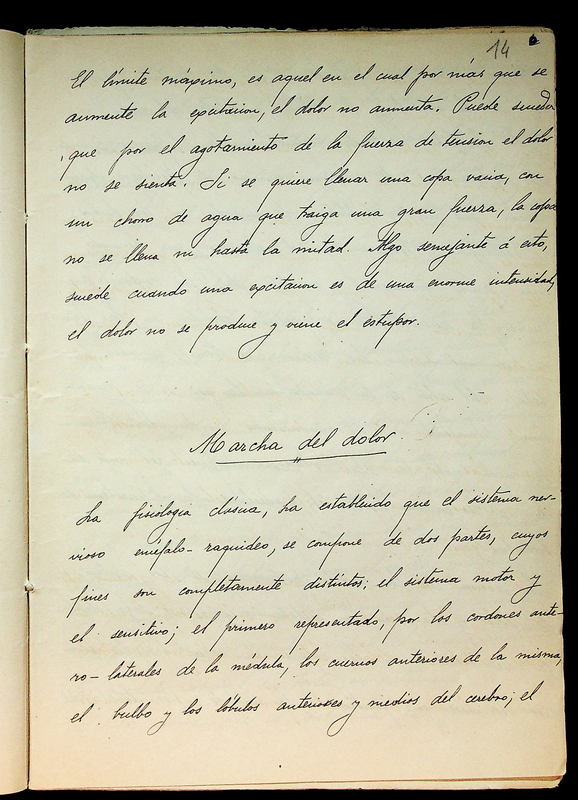 14
El límite máximo, es aquel en el cual por más que se
aumente la excitacion, el dolor no aumenta. Puede suceder
que por el agotamiento de la fuerza de tension el dolor
no se sienta. Si se quiere llenar una copa vacia, con
un chorro de agua que traiga una gran fuerza, la copa
no se llena ni hasta la mitad. Algo semejante á esto,
sucede cuando una excitacion es de una enorme intensidad,
el dolor no se produce y viene el estupor.
Marcha del dolor.
La fisiologia clásica, ha establecido que el sistema ner-
vioso encéfalo-raquideo, se compone de dos partes, cuyos
fines son completamente distintos; el sistema motor y
el sensitivo; el primero representado, por los cordones ante-
ro-laterales de la médula, los cuernos anteriores de la misma,
el bulbo y los lóbulos anteriores y medios del cerebro; el